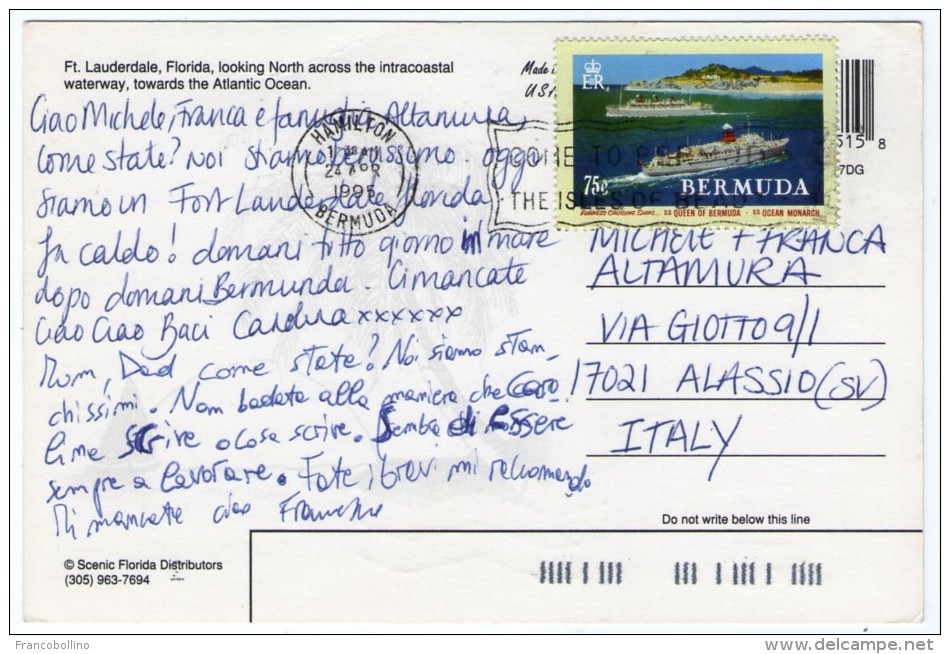 Ft. Lauderdale, Florida, looking North across the intracoastal
waterway, towards the Atlantic Ocean.
Made in
USA
Ciao Michele, Franca e famiglia Altamura,
come state? noi stiamo benissimo. oggi
siamo in Fort Lauderdale Florida
fa caldo! domani tutto giorno in mare
dopo domani Bermunda. Ci mancate
Ciao Ciao Baci xxxxxx
Mum, Dad come state? Noi siamo stan_
chissimi. Non badate alla maniera che Caro
line scrive o cosa scrive. Sembra di essere
sempre a lavorare. Fate i bravi mi raccomando
Mi mancate ciao
HAMILTON
24 APR
1995
BERMUDA
COME TO BERMUDA
THE ISLES OF BEAU
E R
75c
BERMUDA
FURNESS CRUISING SHIPS... S.S. QUEEN OF BERMUDA - S.S. OCEAN MONARCH
515 8
7DG
MICHELE + FRANCA
ALTAMURA
VIA GIOTTO 9/1
17021 ALASSIO (SV)
ITALY
Do not write below this line
© Scenic Florida Distributors
(305) 963-7694
Francobollino
www.delcampe.net